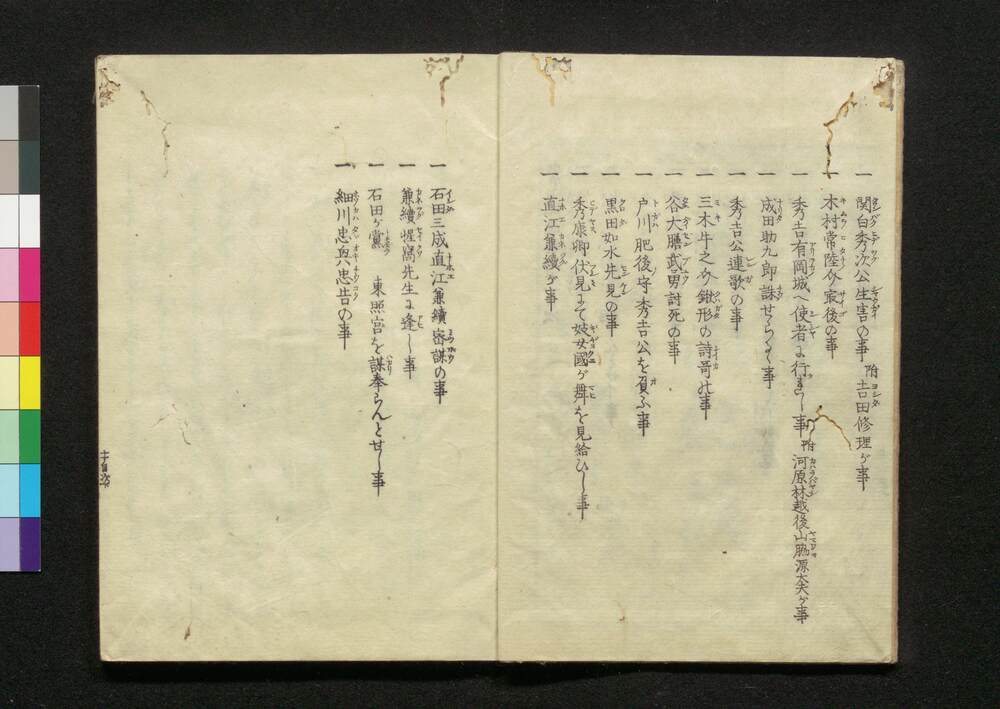 一 関白秀次公生害の事 附 吉田修理ヶ事
一 木村常陸介最後の事
一 秀吉有岡城へ使者に行れし事 附 河原林越後山脇源太夫ヶ事
一 成田助九郎誅せらるゝ事
一 秀吉公連歌の事
一 三木牛之介鉗形の詩哥の事
一 谷大膳武勇討死の事
一 戸川肥後守秀吉公を負ふ事
一 黒田如水先見の事
一 秀康卿伏見にて妓女國ヶ舞を見給ひし事
一 直江兼續ヶ事
一 石田三成直江兼續密謀の事
一 兼續惺窩先生に逢し事
一 石田ヶ黨 東照宮を謀奉らんとせし事
一 細川忠興忠告の事